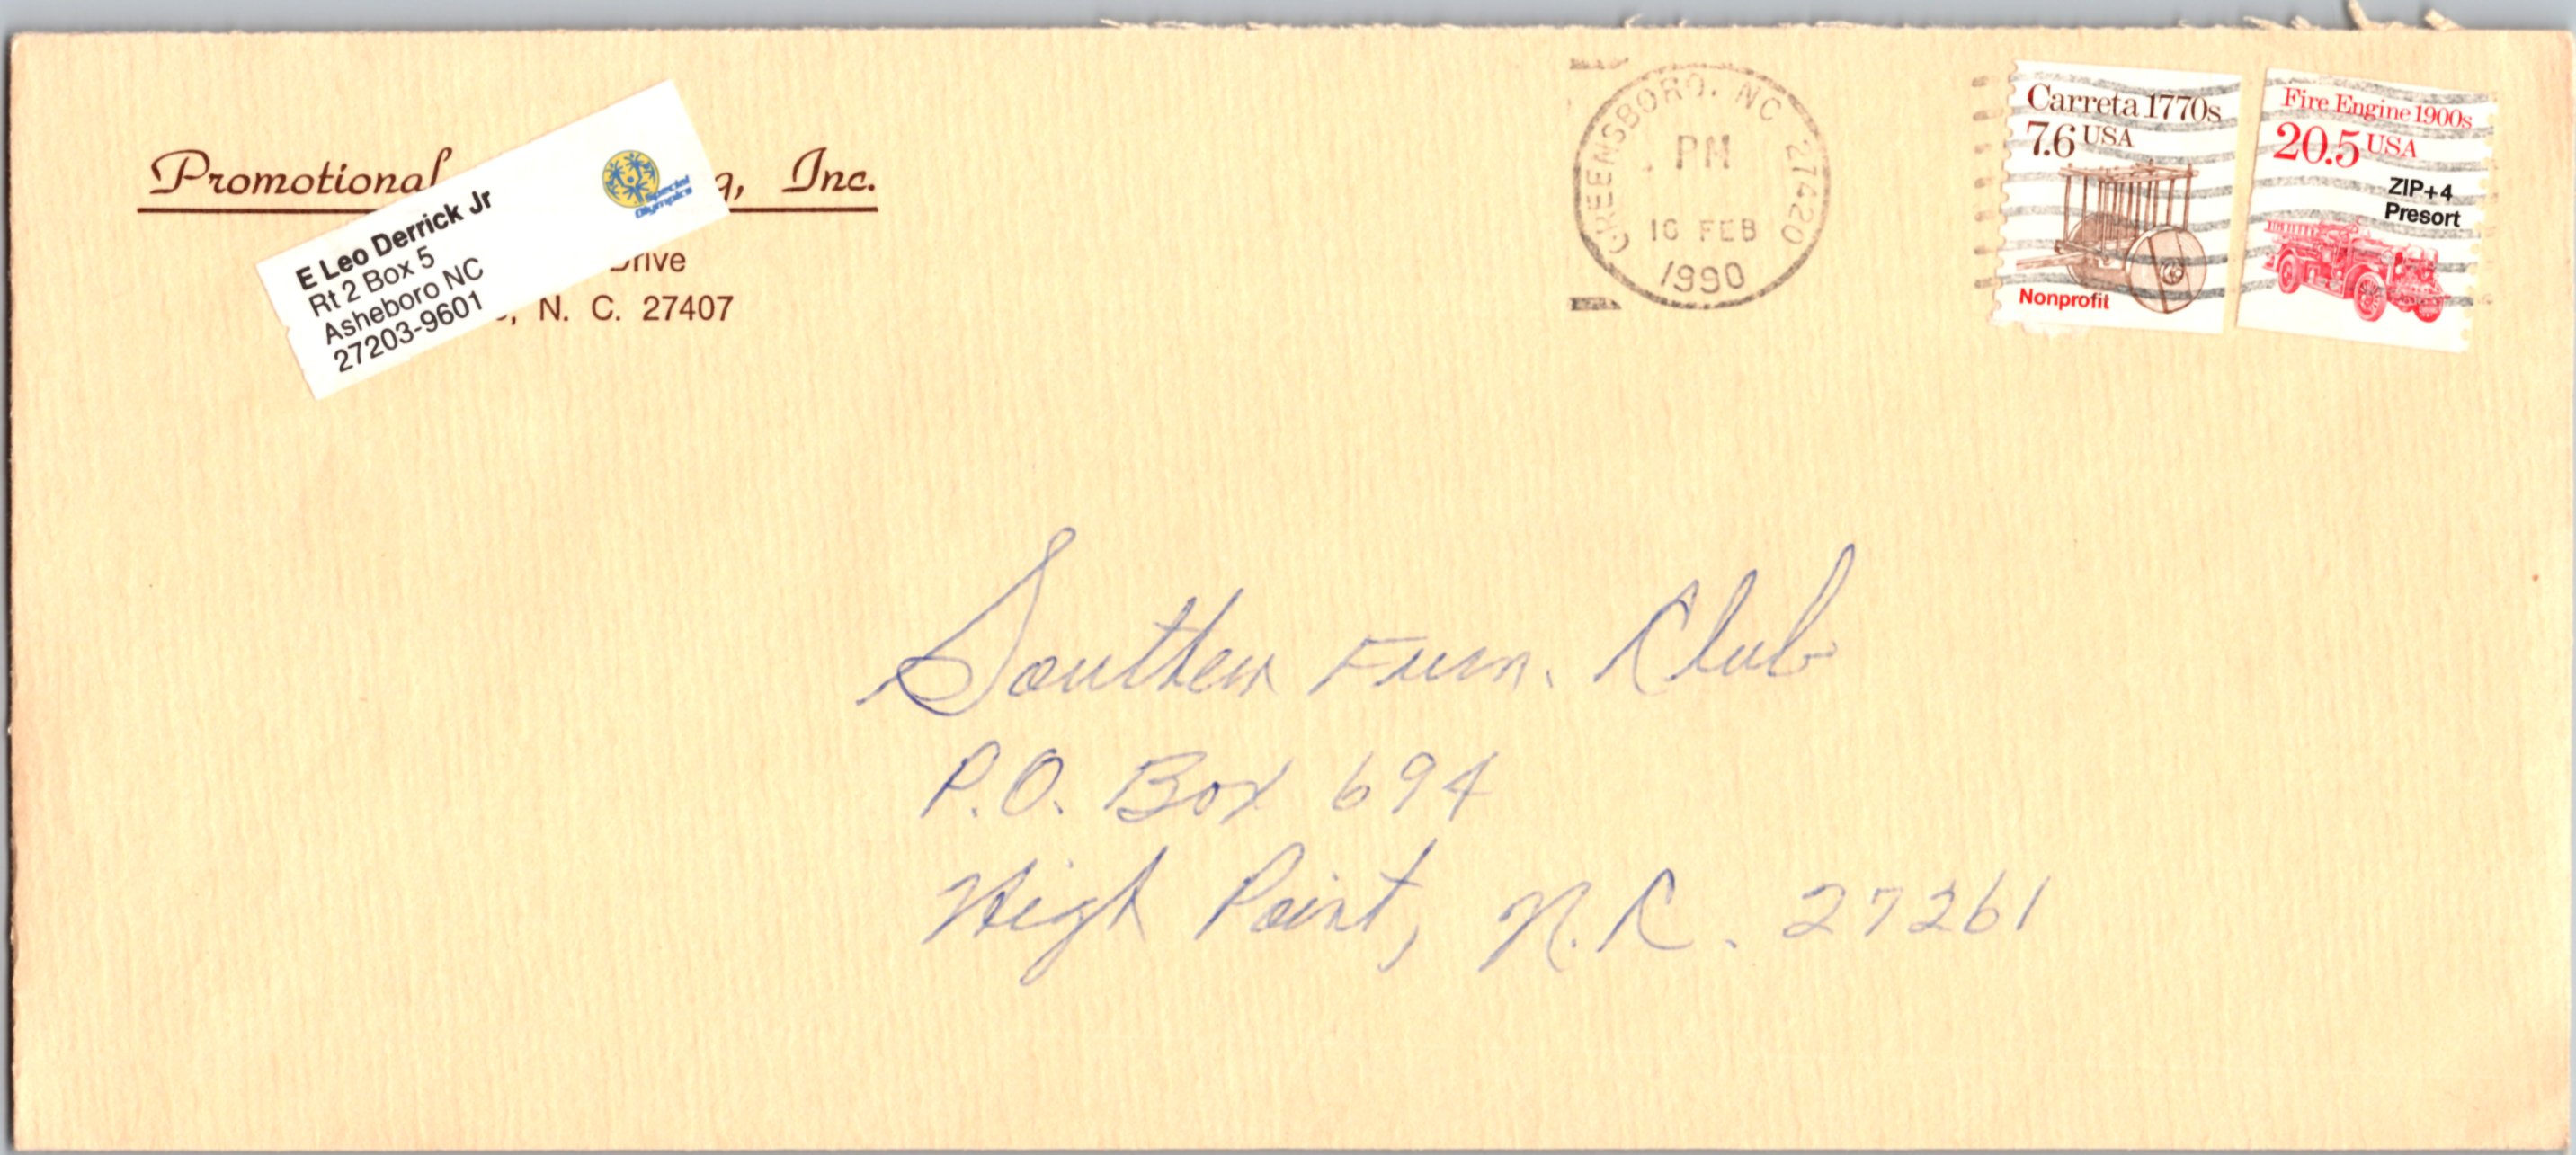 Promotional g, Inc.
Drive
, N. C. 27407
E Leo Derrick Jr
Rt 2 Box 5
Asheboro NC
27203-9601
Special
Olympics
GREENSBORO, NC 27420
PM
16 FEB
1990
Carreta 1770s
7.6 USA
Nonprofit
Fire Engine 1900s
20.5 USA
ZIP+4
Presort
Southern Furn. Club
P.O. Box 694
High Point, N.C. 27261